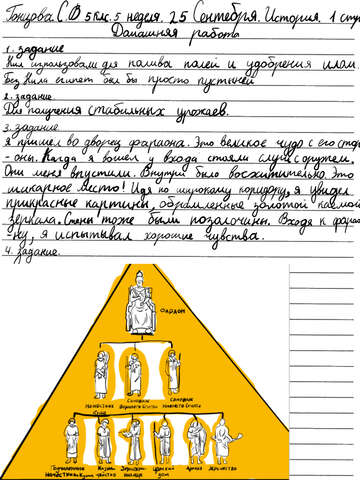 Гонцова. С Ф 5 клс. 5 неделя. 25 Сентября. История. 1 сту
Домашняя работа
1. задание
Нил использовали для полива полей и удобрения илом.
Без Нила египет был бы просто пустыней
2. задание.
Для получения стабильных урожаев.
3. задание
Я пришел во дворец фараона. Это великое чудо с его
- оны. Когда я вошел у входа стояли слуги с оружием.
Они меня впустили. Внутри было восхитительно. Это
шикарное место! Идя по широкому коридору, я увидел
прикрасные картины, обрамленные золотой каемой
зеркала. Стены тоже были позалочины. Входя к фарао
-ну, я испытывал хорошие чувства.
4. задание.
ФАРАОН
Советник Верхнего Египта
Советник Нижнего Египта
Казна-чейство
Царский дом
Армия